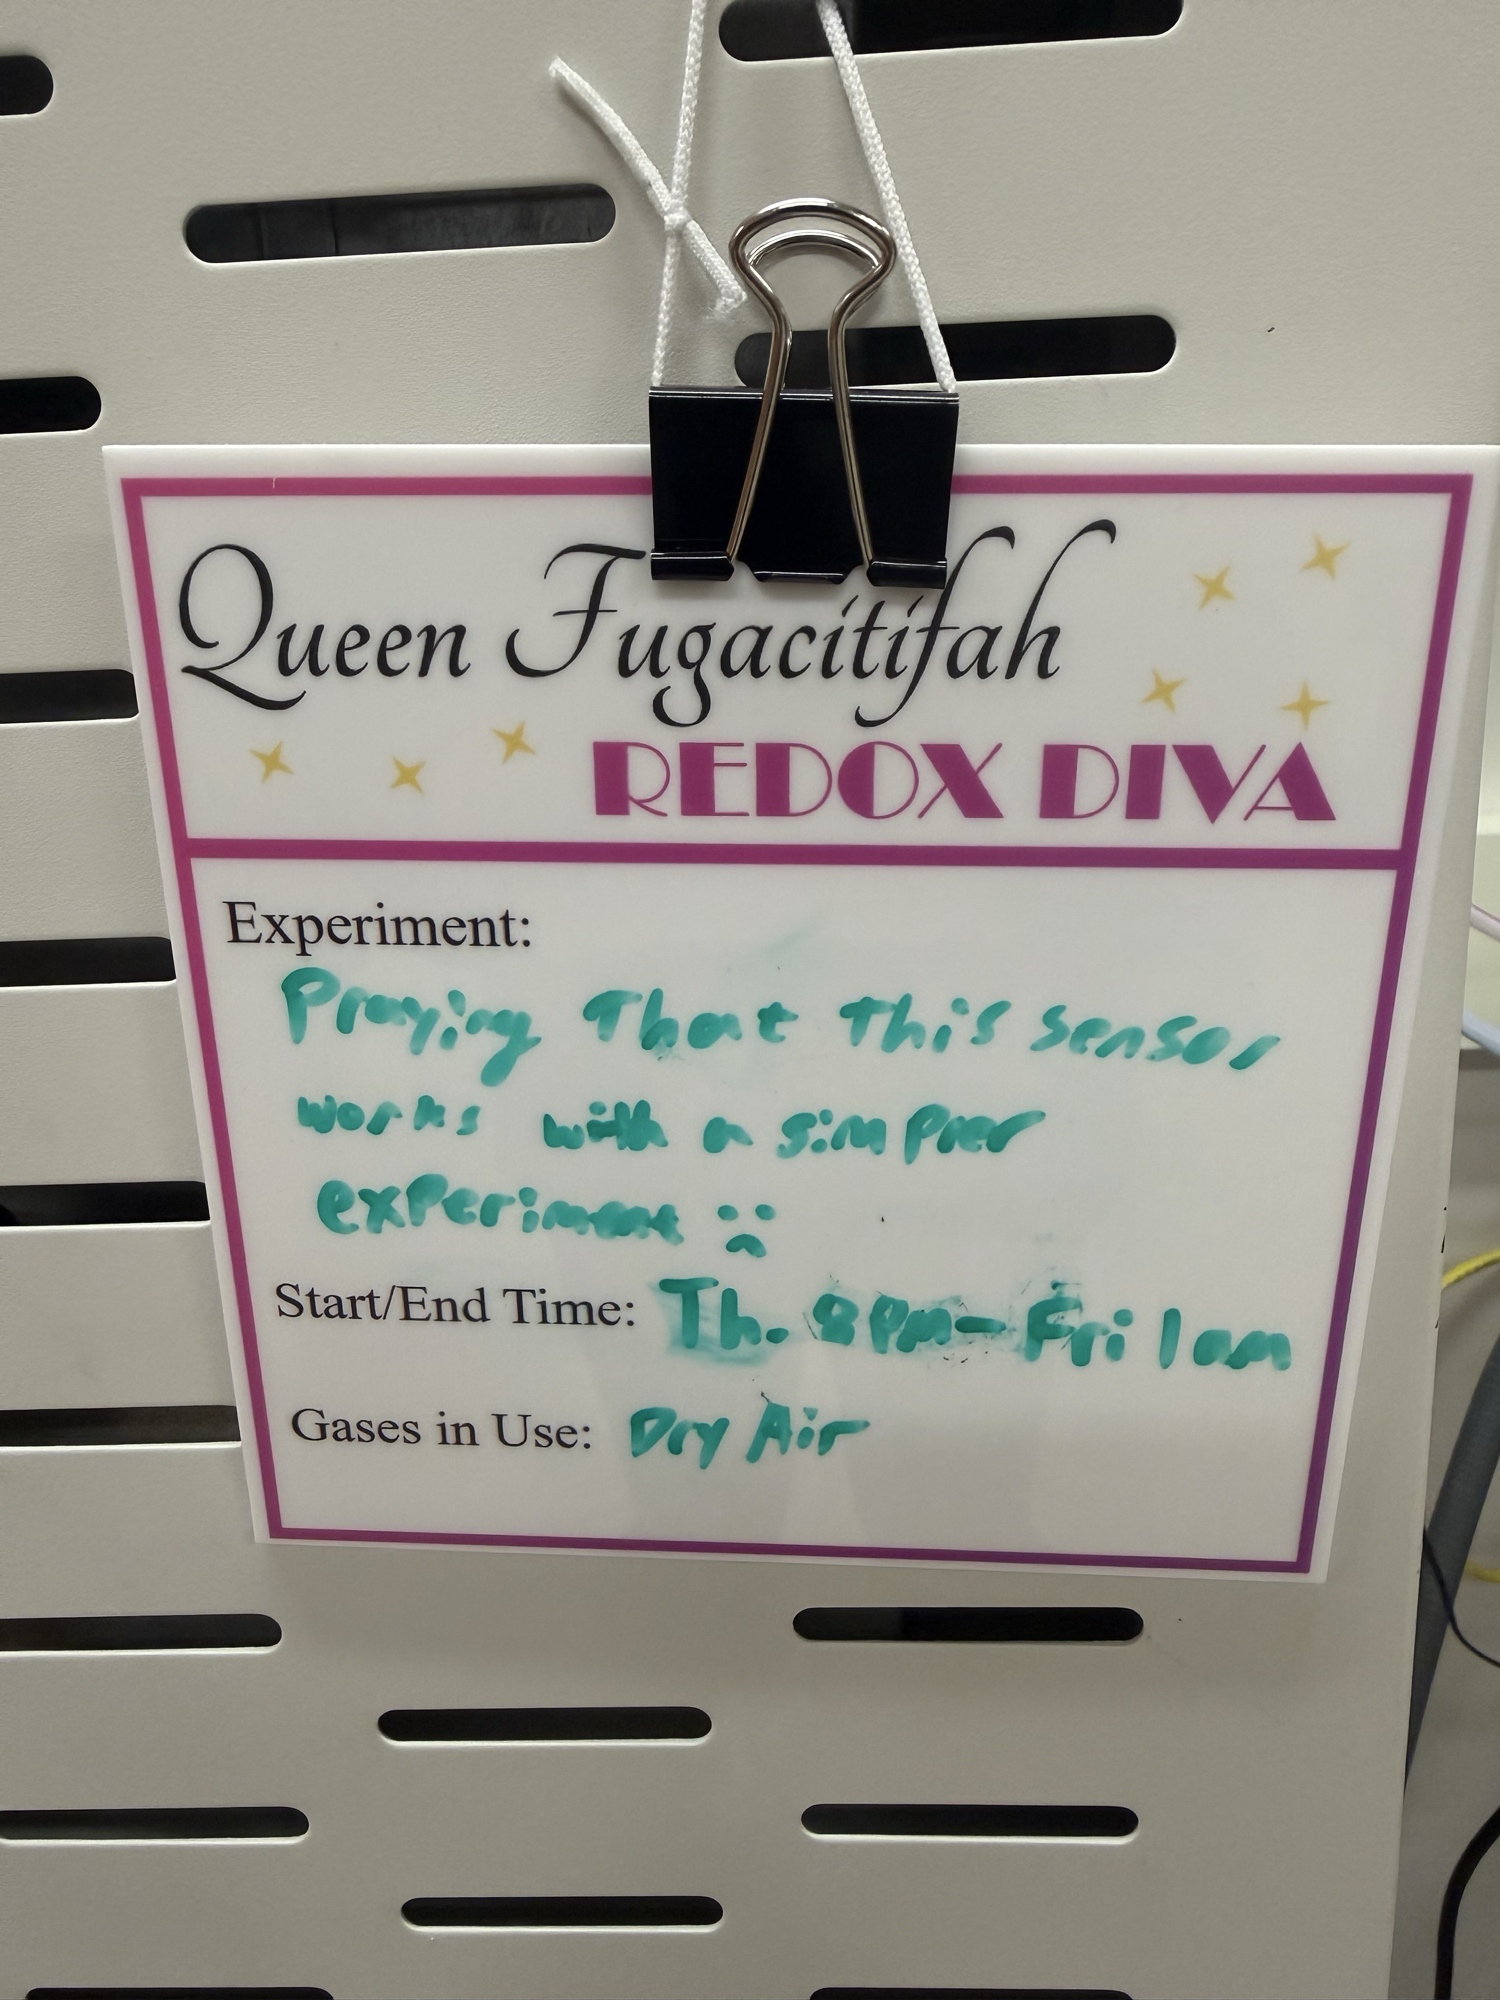 Queen Fugacitifah
REDOX DIVA
Experiment:
Praying That This sensor
works with a simpler
experiment :(
Start/End Time: Th. 8pm - Fri 1am
Gases in Use: Dry Air